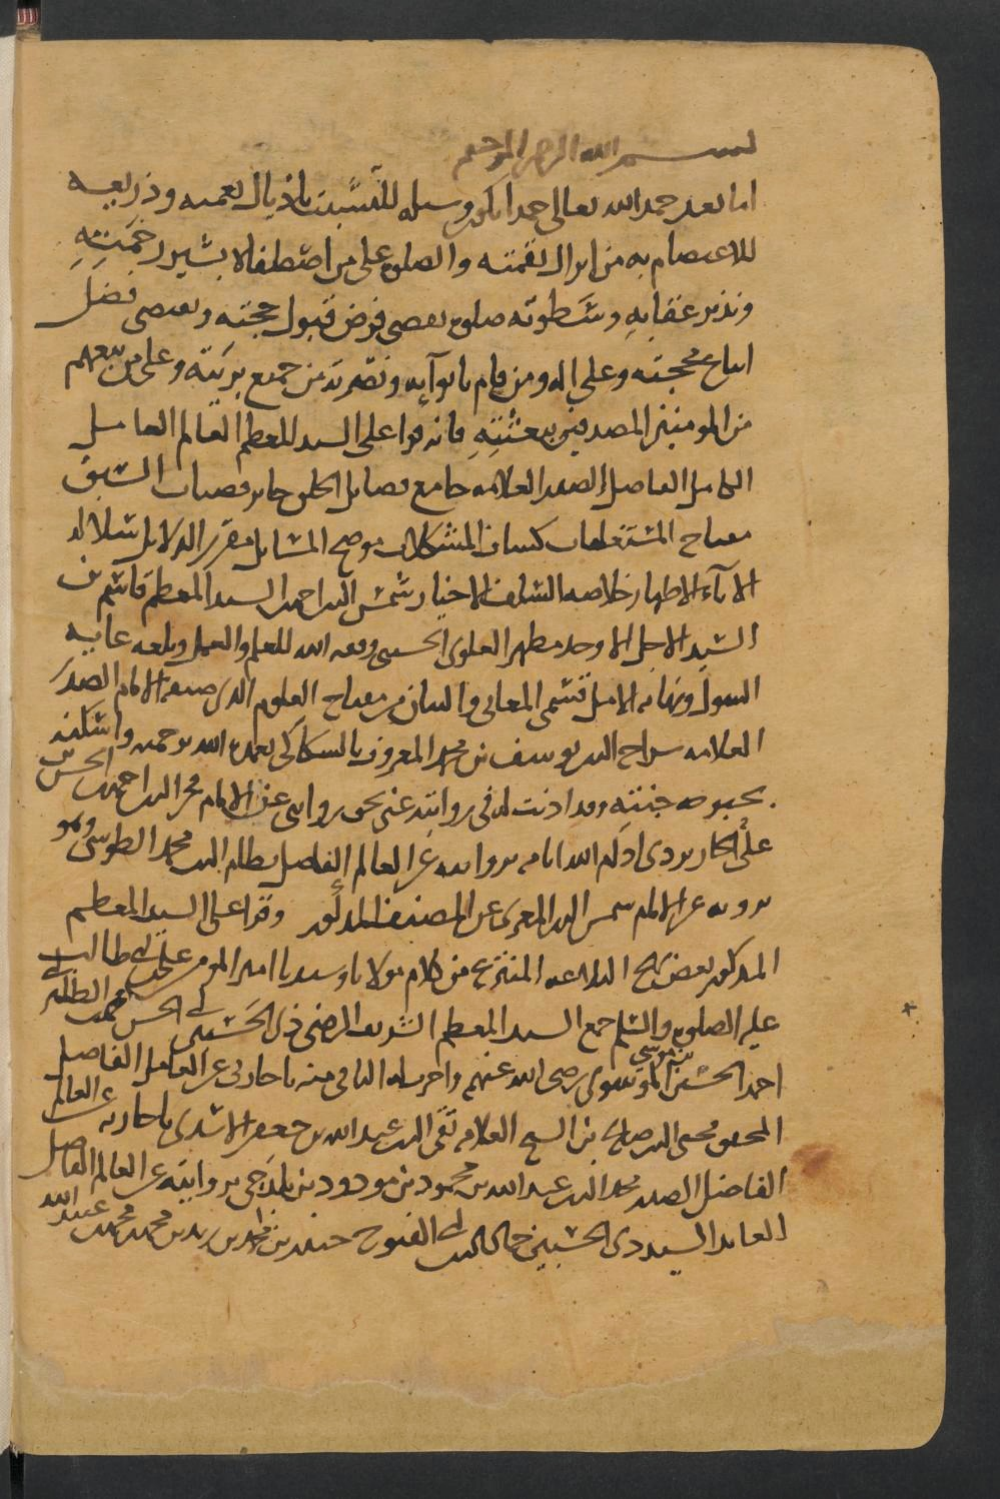 بسم الله الرحمن الرحيم
اما بعد حمد الله تعالى حمدا يكون وسيله للتشبث باذيال نعمته وذريعه
للاعتصام به من انزال نقمته والصلوه على من اصطفاه لا بشير رحمته
ونذير عقابه وسطوته صلوه تقضى فرض قبول حجته وتقتضى فضل
اتباع محجته وعلى اله ومن قام بابوآيه ونصرته من جميع بريته وعلى من تبعهم
من المومنين المصدقين ببعثته فانه قرا على السيد المعظم العالم العامل
الكامل الفاضل الصدر العلامه جامع فضايل الخلق حايز قصبات السبق
مفتاح المستغلقات كشاف المشكلات موضح المسايل مقرر الدلايل سلاله
الاباء الاطهار خلاصه السلف الاخيار شمس الدين احمد السيد المعظم قاسم بن
السيد الاجل الاوحد مطهر العلوى الحسينى وفقه الله للعلم والعمل وبلغه غايه
السول ونهايه الامل قسمى المعانى والبيان من مفتاح العلوم الذى صنفه الامام الصدر
العلامه سراج الدين يوسف بن محمد المعروف بالسكاكى تغمده الله برحمته واسكنه
بحبوحه جنته وقد اذنت له فى روايته عنى بحق روايتى عن الامام فخر الدين احمد بن الحسن بن
على الجاربردى ادام الله ايامه بروايته عن العالم الفاضل نظام الدين محمد الطوسى وهو
يرويه عن الامام شمس الدين المعزى عن المصنف المذكور وقرا على السيد المعظم
المذكور بعض نهج البلاغه المنتزع من كلام مولانا وسيدنا امير المومنين على بن ابى طالب
عليه الصلوه والسلم جمع السيد المعظم الشريف الرضى ذى الحسبين ابى الحسن محمد بن الطاهر ابى
احمد الحسين بن موسى الموسوى رضى الله عنهم واجزت له الباقى منه باجازتى عن العامل الفاضل
المحقق محيى الدين صالح بن الشيخ العلامه تقى الدين عبد الله بن جعفر الاسدى باجازته عن العالم
الفاضل الصدر مجد الدين عبد الله بن محمود بن مودود بن بلدجى بروايته عن العالم الفاضل
العابد السيد ذى الحسبين كمال الدين ابى الفتوح حيدر بن محمد بن زيد بن محمد بن محمد بن عبيد الله